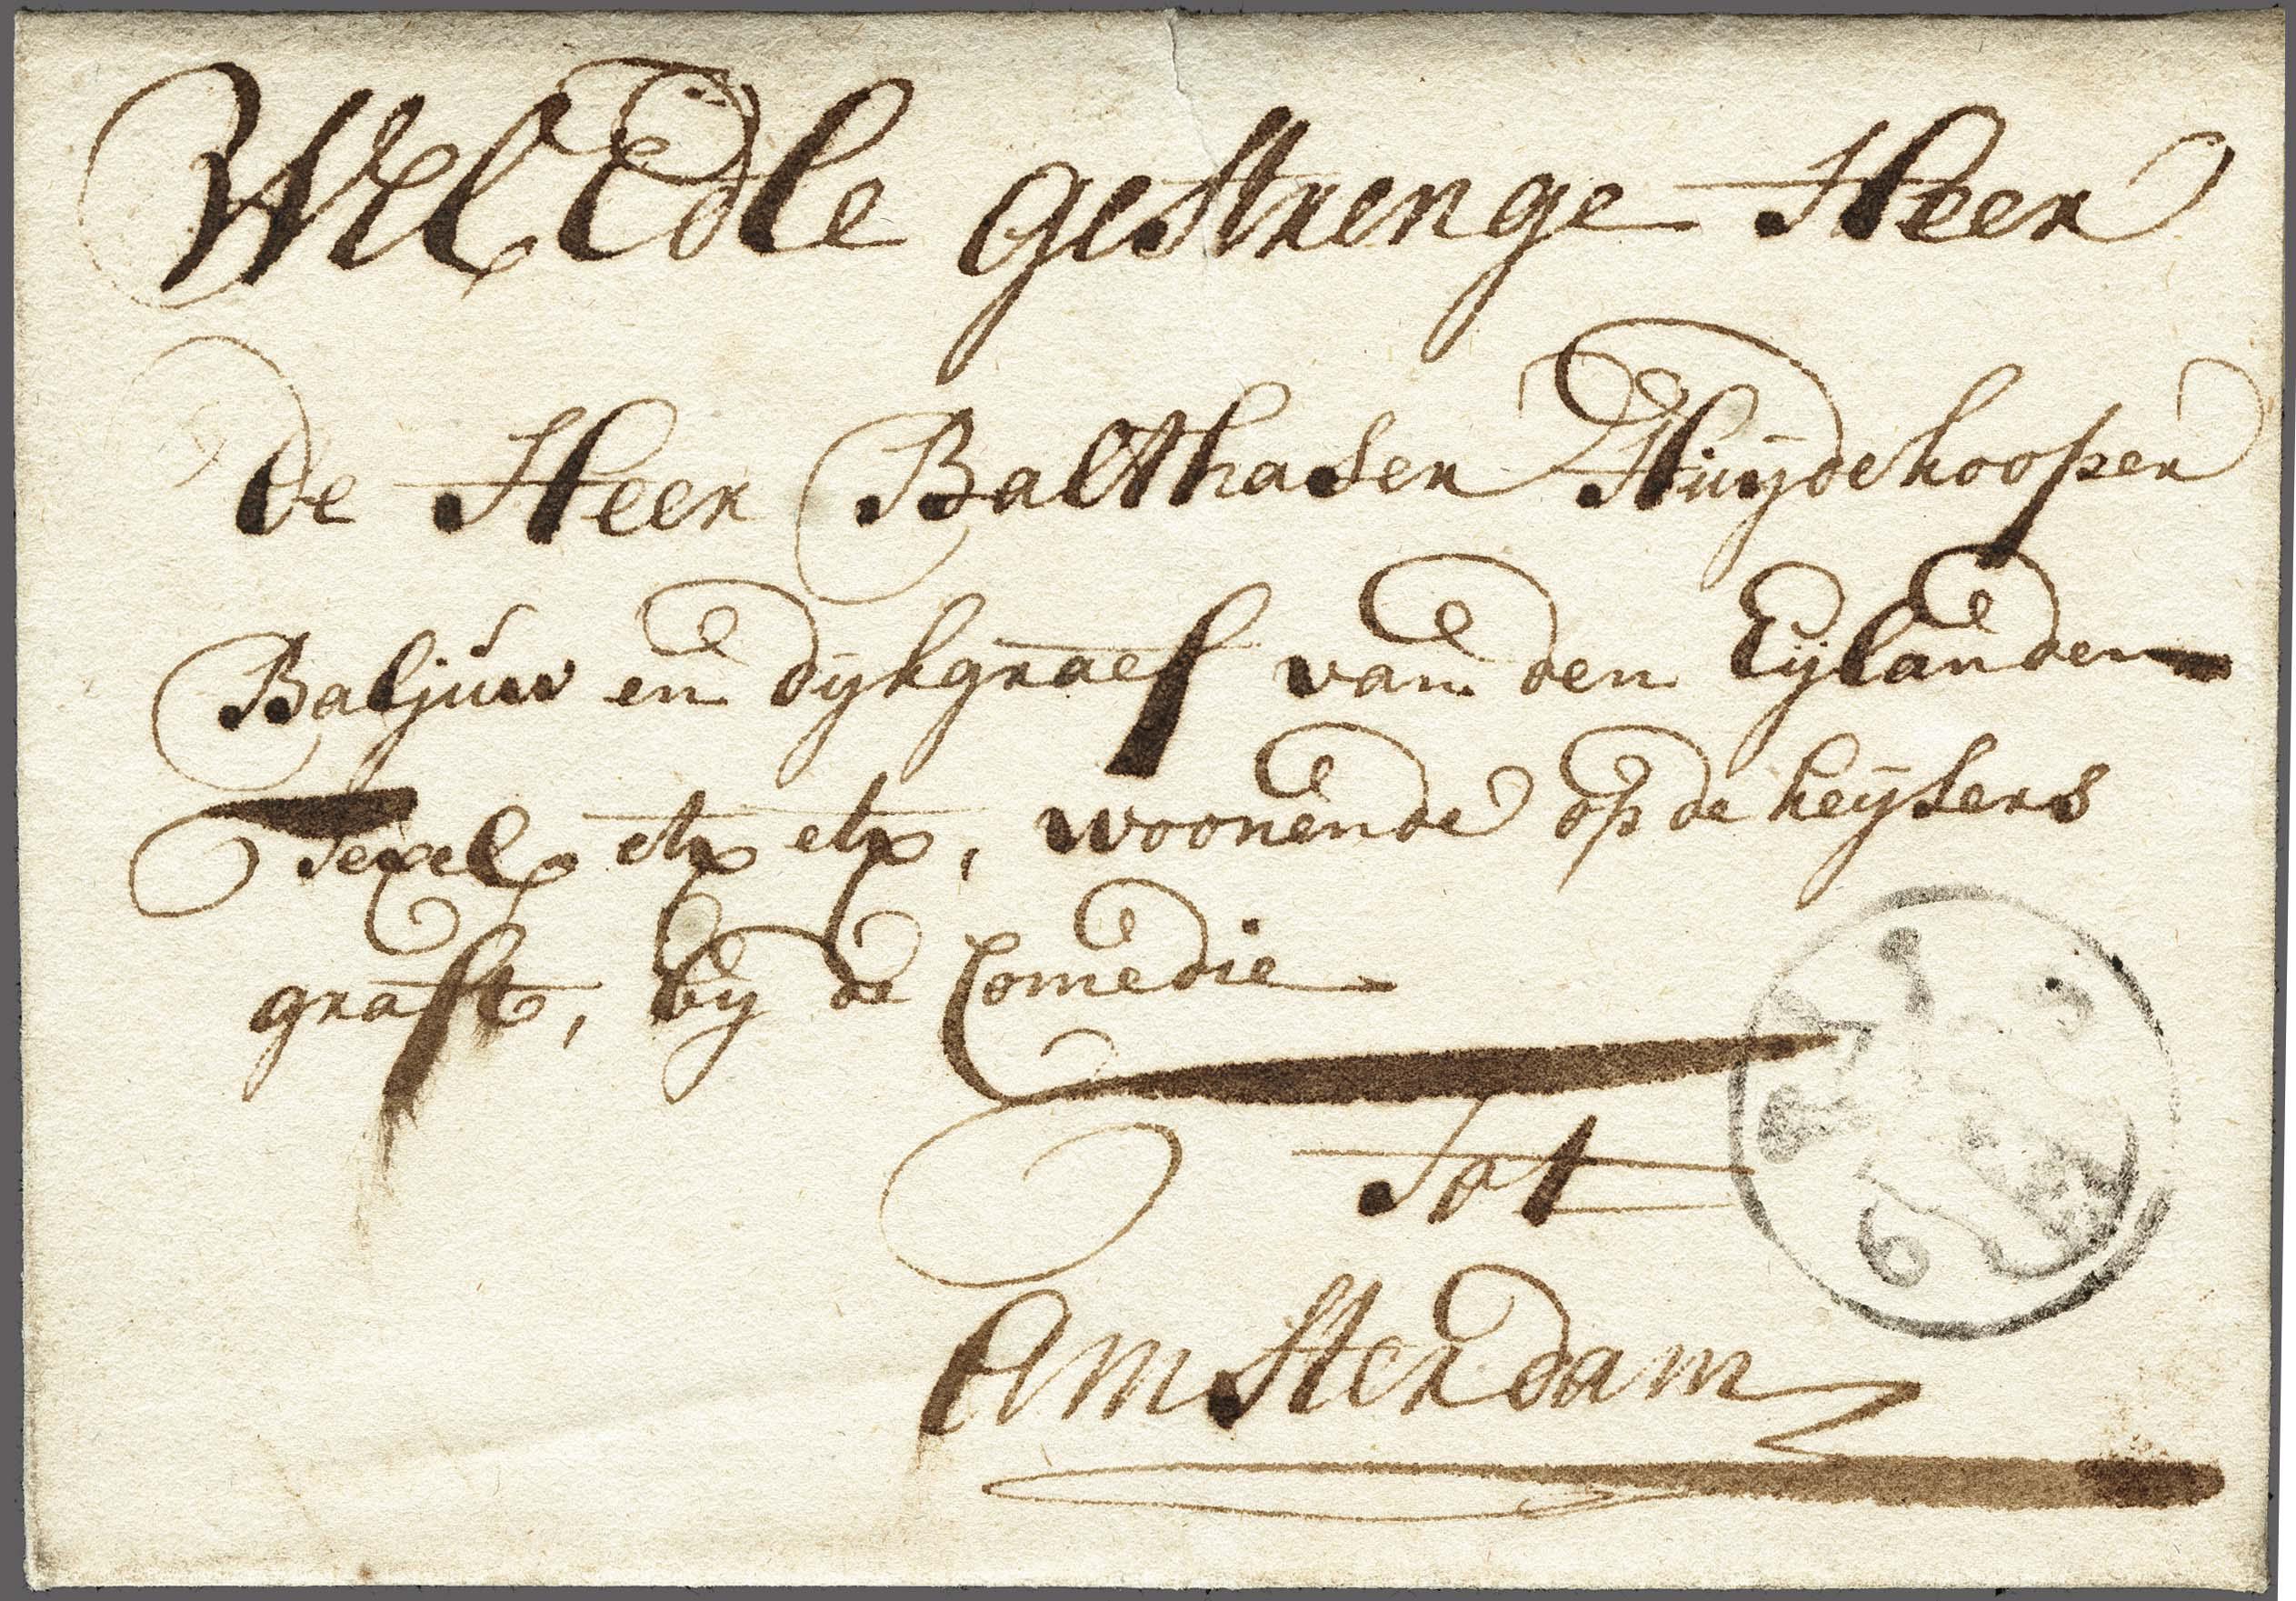 Wel Edle gestrenge Heer
de Heer Balthaser Huijdekooper
Baljúw en dijkgraef van den Eijlanden
Texel etc etc, woonende op de keijsers
graft, bij de Comedie
Tot
Amsterdam